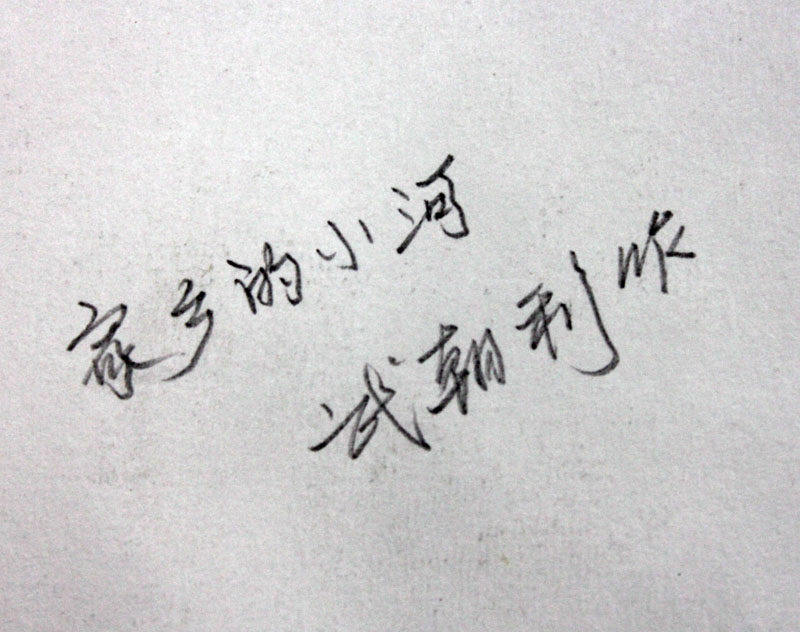 家乡的小河
武朝利作